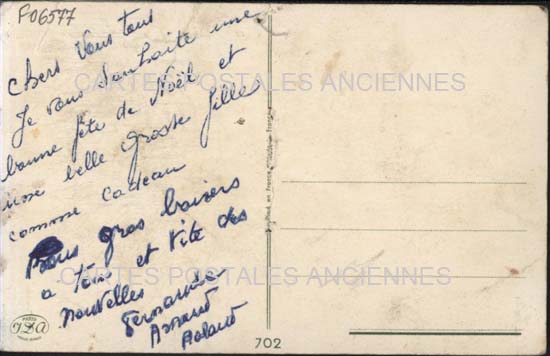 F06577
chers Vous tous
Je vous souhaite une
bonne fête de Noël et
une belle grosse filles
comme cadeau
Bons gros baisers
a tous et Vite des
nouvelles
Fernande
Armand
Roland
CARTES POSTALES ANCIENNES
CARTES POSTALES ANCIENNES
PARIS
702